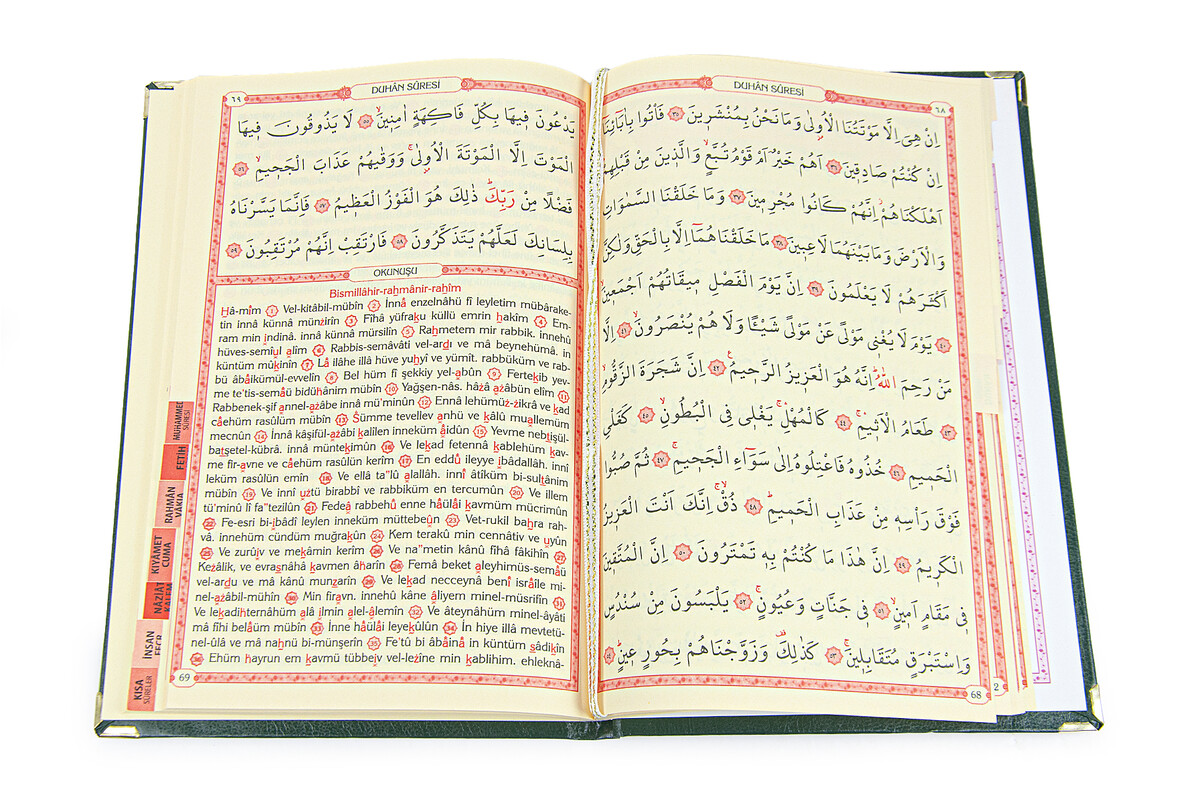 DUHÂN SÛRESİ
٦٨
اِنْ هِيَ اِلَّا مَوْتَتُنَا الْاُولٰى وَمَا نَحْنُ بِمُنْشَر۪ينَ ٣٥ فَأْتُوا بِاٰبَٓائِنَٓا
اِنْ كُنْتُمْ صَادِق۪ينَ ٣٦ اَهُمْ خَيْرٌ اَمْ قَوْمُ تُبَّعٍۙ وَالَّذ۪ينَ مِنْ قَبْلِهِمْ
اَهْلَكْنَاهُمْۘ اِنَّهُمْ كَانُوا مُجْرِم۪ينَ ٣٧ وَمَا خَلَقْنَا السَّمٰوَاتِ
وَالْاَرْضَ وَمَا بَيْنَهُمَا لَاعِب۪ينَ ٣٨ مَا خَلَقْنَاهُمَٓا اِلَّا بِالْحَقِّ وَلٰكِنَّ
اَكْثَرَهُمْ لَا يَعْلَمُونَ ٣٩ اِنَّ يَوْمَ الْفَصْلِ م۪يقَاتُهُمْ اَجْمَع۪ينَۙ
٤٠ يَوْمَ لَا يُغْن۪ي مَوْلًى عَنْ مَوْلًى شَيْـًٔا وَلَا هُمْ يُنْصَرُونَۙ ٤١ اِلَّا
مَنْ رَحِمَ اللّٰهُۜ اِنَّهُ هُوَ الْعَز۪يزُ الرَّح۪يمُ۟ ٤٢ اِنَّ شَجَرَةَ الزَّقُّومِۙ
٤٣ طَعَامُ الْاَث۪يمِۚ ٤٤ كَالْمُهْلِۚ يَغْل۪ي فِي الْبُطُونِۙ ٤٥ كَغَلْيِ
الْحَم۪يمِ ٤٦ خُذُوهُ فَاعْتِلُوهُ اِلٰى سَوَٓاءِ الْجَح۪يمِۚ ٤٧ ثُمَّ صُبُّوا
فَوْقَ رَأْسِه۪ مِنْ عَذَابِ الْحَم۪يمِۜ ٤٨ ذُقْۙ اِنَّكَ اَنْتَ الْعَز۪يزُ
الْكَر۪يمُ ٤٩ اِنَّ هٰذَا مَا كُنْتُمْ بِه۪ تَمْتَرُونَ ٥٠ اِنَّ الْمُتَّق۪ينَ
ف۪ي مَقَامٍ اَم۪ينٍۙ ٥١ ف۪ي جَنَّاتٍ وَعُيُونٍۚ ٥٢ يَلْبَسُونَ مِنْ سُنْدُسٍ
وَاِسْتَبْرَقٍ مُتَقَابِل۪ينَۚ ٥٣ كَذٰلِكَ۠ وَزَوَّجْنَاهُمْ بِحُورٍ ع۪ينٍۜ ٥٤
68
2
٦٩
DUHÂN SÛRESİ
يَدْعُونَ ف۪يهَا بِكُلِّ فَاكِهَةٍ اٰمِن۪ينَۙ ٥٥ لَا يَذُوقُونَ ف۪يهَا
الْمَوْتَ اِلَّا الْمَوْتَةَ الْاُولٰىۚ وَوَقٰيهُمْ عَذَابَ الْجَح۪يمِۙ ٥٦
فَضْلًا مِنْ رَبِّكَۜ ذٰلِكَ هُوَ الْفَوْزُ الْعَظ۪يمُ ٥٧ فَاِنَّمَا يَسَّرْنَاهُ
بِلِسَانِكَ لَعَلَّهُمْ يَتَذَكَّرُونَ ٥٨ فَارْتَقِبْ اِنَّهُمْ مُرْتَقِبُونَ ٥٩
OKUNUŞU
Bismillâhir-rahmânir-rahîm
Hâ-mîm 1 Vel-kitâbil-mübîn 2 İnnâ enzelnâhü fî leyletim mübârake-
tin innâ künnâ münzirîn 3 Fîhâ yüfraku küllü emrin hakîm 4 Em-
ram min ındinâ. innâ künnâ mürsilîn 5 Rahmetem mir rabbik. innehû
hüves-semîul alîm 6 Rabbis-semâvâti vel-ardı ve mâ beynehümâ. in
küntüm mûkinîn 7 Lâ ilâhe illâ hüve yuhyî ve yümît. rabbüküm ve rab-
bü âbâikümül-evvelîn 8 Bel hüm fî şekkiy yel-abûn 9 Fertekıb yev-
me te'tis-semâü bidühânim mübîn 10 Yağşen-nâs. hâzâ azâbün elîm 11
Rabbenek-şif annel-azâbe innâ mü'minûn 12 Ennâ lehümüz-zikrâ ve kad
câehüm rasûlüm mübîn 13 Sümme tevellev anhü ve kâlû muallemüm
mecnûn 14 İnnâ kâşifül-azâbi kalîlen inneküm âidûn 15 Yevme nebtışül-
batşetel-kübrâ. innâ müntekimûn 16 Ve lekad fetennâ kablehüm kav-
me fir-avne ve câehüm rasûlün kerîm 17 En eddû ileyye ibâdallâh. innî
leküm rasûlün emîn 18 Ve ellâ ta"lû alallâh. innî âtîküm bi-sultânim
mübîn 19 Ve innî uztü birabbî ve rabbiküm en tercumûn 20 Ve illem
tü'minû lî fa"tezilûn 21 Fedeâ rabbehû enne hâülâi kavmüm mücrimûn
22 Fe-esri bi-ıbâdî leylen inneküm müttebeûn 23 Vet-rukil bahra rah-
vâ. innehüm cündüm muğrakûn 24 Kem terakû min cennâtiv ve uyûn
25 Ve zurûıv ve mekâmin kerîm 26 Ve na"metin kânû fîhâ fâkihîn 27
Kezâlik, ve evrasnâhâ kavmen âharîn 28 Femâ beket aleyhimüs-semâü
vel-ardu ve mâ kânû munzarîn 29 Ve lekad necceynâ benî isrâîle mi-
nel-azâbil-mühîn 30 Min firavn. innehû kâne âliyem minel-müsrifîn 31
Ve lekadihternâhüm alâ ılmin alel-âlemîn 32 Ve âteynâhüm minel-âyâti
mâ fîhi belâüm mübîn 33 İnne hâülâi leyekûlûn 34 İn hiye illâ mevtetü-
nel-ûlâ ve mâ nahnü bi-münşerîn 35 Fe'tû bi âbâinâ in küntüm sâdikîn
36 Ehüm hayrun em kavmü tübbeıv vel-lezîne min kablihim. ehleknâ-
69
MUHAMMED
SÛRESİ
FETİH
RAHMÂN
VÂKIA
KIYAMET
CUMA
NÂZİÂT
KALEM
İNSAN
FECR
KISA
SÛRELER